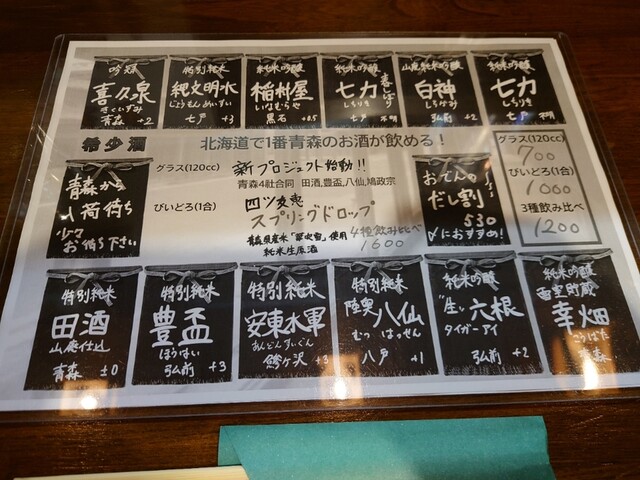 吟冠
喜久泉
きくいずみ
青森 +2
特別純米
縄文明水
じょうもんめいすい
七戸 +3
純米吟醸
稲村屋
いなむらや
黒石 +0.5
純米吟醸
七力
しちりき
七戸 不明
山廃純米吟醸
白神
しらかみ
弘前 +2
純米吟醸
七力
しちりき
七戸 不明
希少酒
北海道で1番青森のお酒が飲める!
青森から
入荷待ち
少々
お待ち下さい
グラス(120cc)
びいどろ(1合)
新プロジェクト始動!!
青森4社合同 田酒,豊盃,八仙,鳩政宗
スプリングドロップ
純米生原酒
4種飲み比べ
1600
おでんの
だし割
530
〆におすすめ!
グラス(120cc)
700
びいどろ(1合)
1000
3種飲み比べ
1200
特別純米
田酒
山廃仕込
青森 ±0
特別純米
豊盃
ほうはい
弘前 +3
特別純米
安東水軍
あんどんすいぐん
鰺ヶ沢 +3
特別純米
陸奥八仙
むつ はっせん
八戸 +1
純米吟醸
"生"六根
タイガーアイ
弘前 +2
純米吟醸
雪室貯蔵
幸畑
こうばた
青森